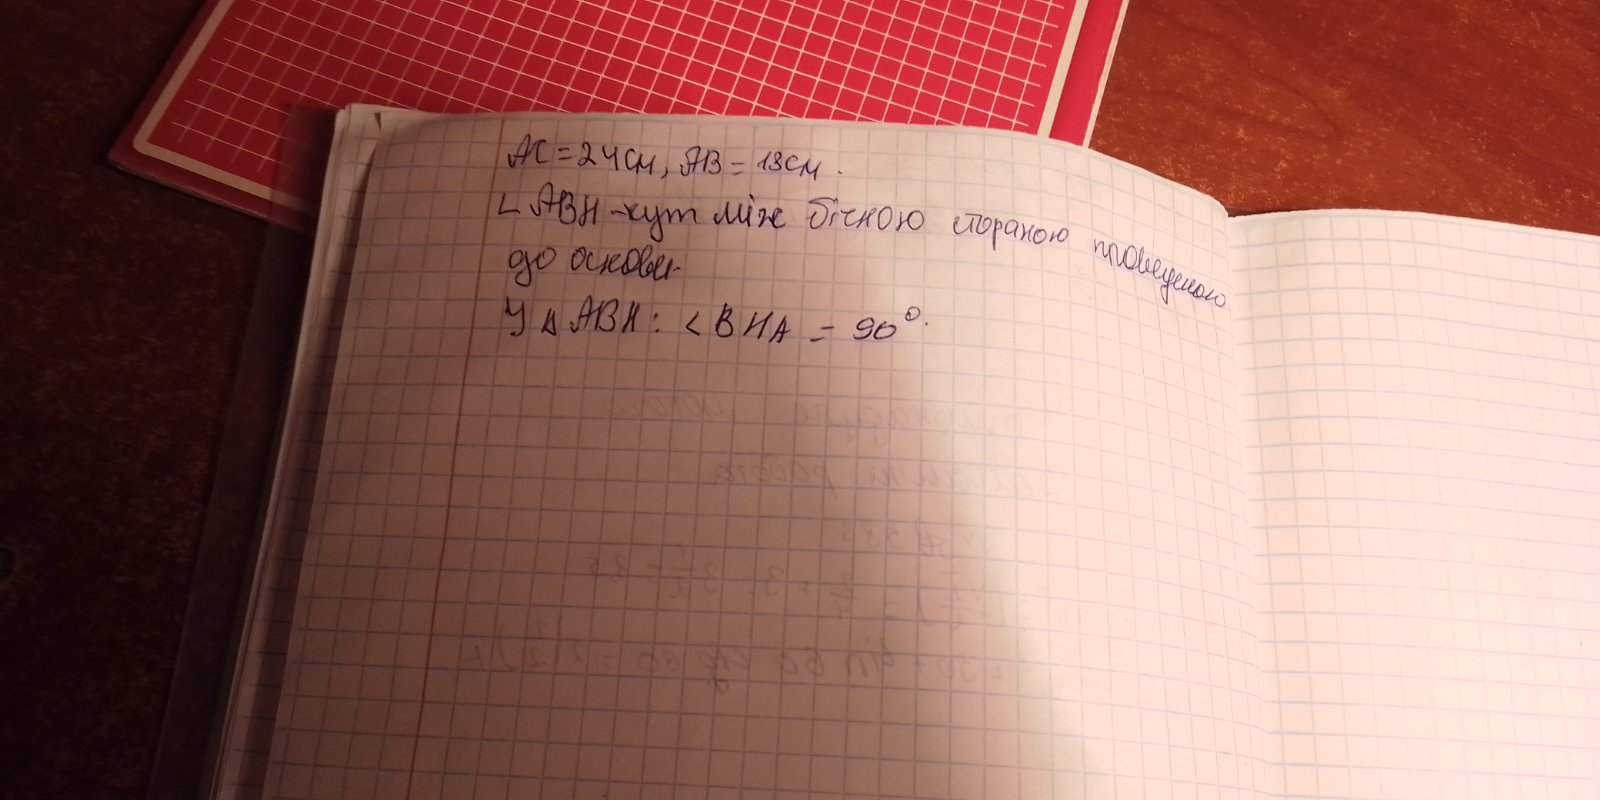 AC = 24 см, AB = 13 см.
∠ ABH - кут між бічною стораною проведеною
до основи.
У Δ ABH: ∠ BHA = 90°.